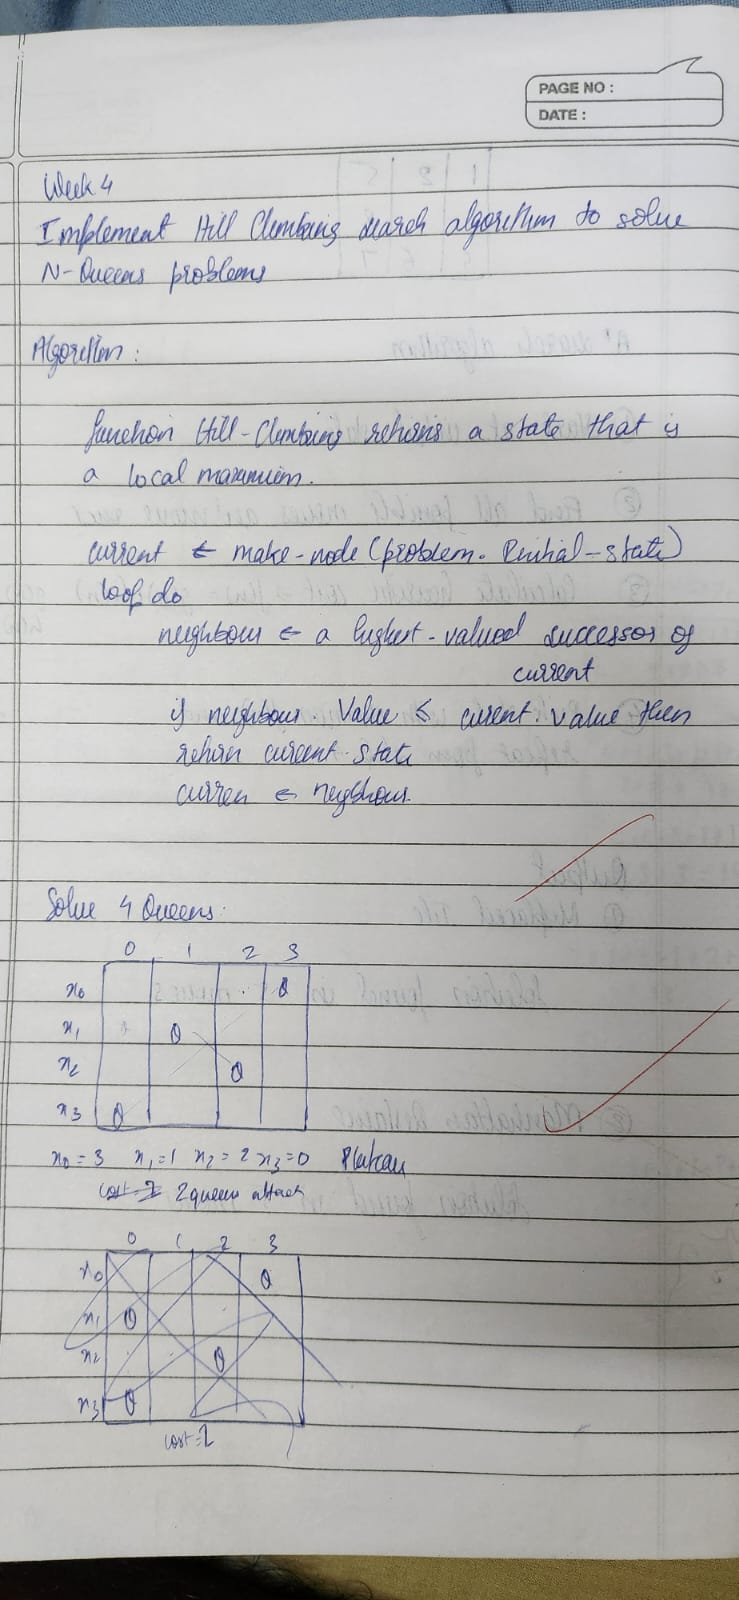 PAGE NO :
DATE :
Week 4
Implement Hill Climbing search algorithm to solve
N-Queens problems
Algorithm :
function Hill-Climbing returns a state that is
a local maximum.
current ← make-node (problem. Initial-state)
loop do
neighbour ← a highest-valued successor of
current
if neighbour. Value ≤ current. value then
return current. state
curren ← neighbour.
Solve 4 Queens:
0 1 2 3
x0 Q
x1 Q
x2 Q
x3 Q
x0 = 3 x1 = 1 x2 = 2 x3 = 0 Plateau
2 queen attack
0 1 2 3
x0 Q
x1 Q
x2 Q
x3 Q
cost = 2